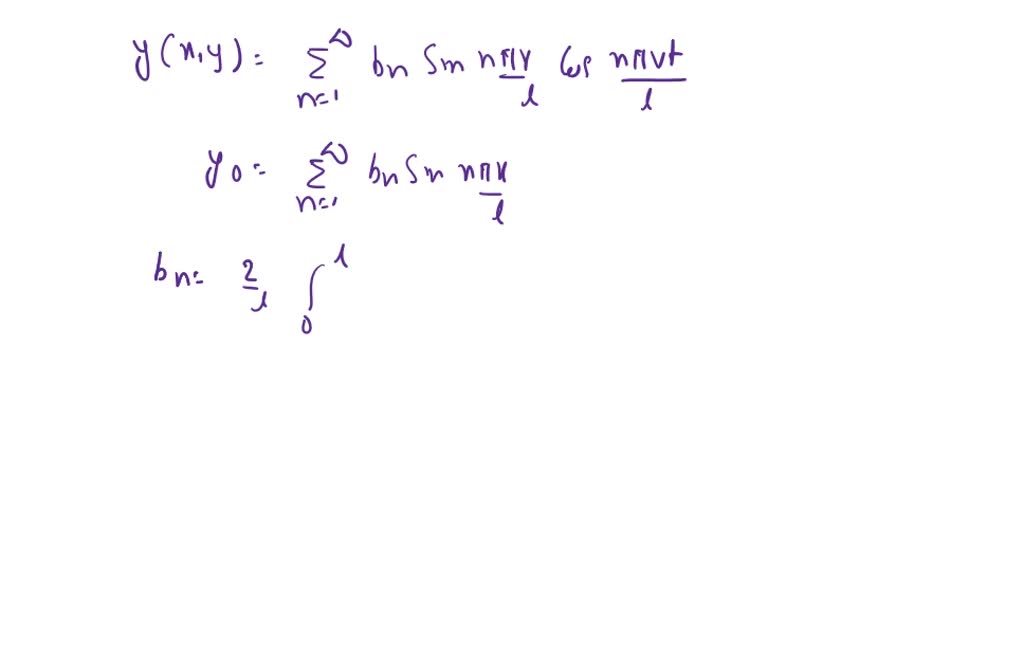 y(x,y) = ∑_{n=1}^{∞} bn Sin nπx/l Cos nπvt/l
y0 = ∑_{n=1}^{∞} bn Sin nπx/l
bn = 2/l ∫_0^l